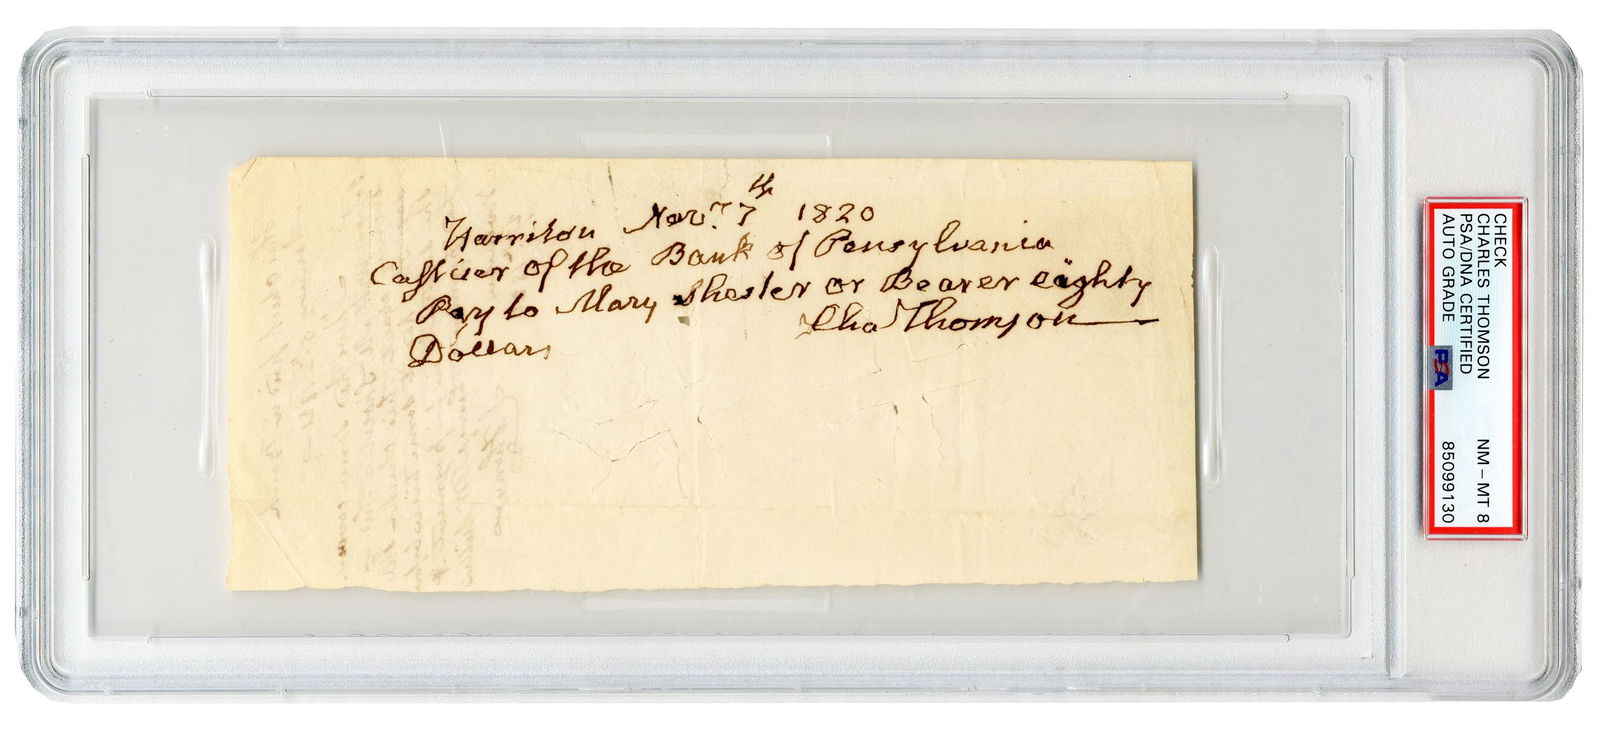 Harriton Novr. 7th 1820
Cashier of the Bank of Pensylvania
Pay to Mary Shesler or Bearer eighty
Dollars
Chas Thomson
CHECK
CHARLES THOMSON
PSA/DNA CERTIFIED
AUTO GRADE
NM-MT 8
85099130
PSA